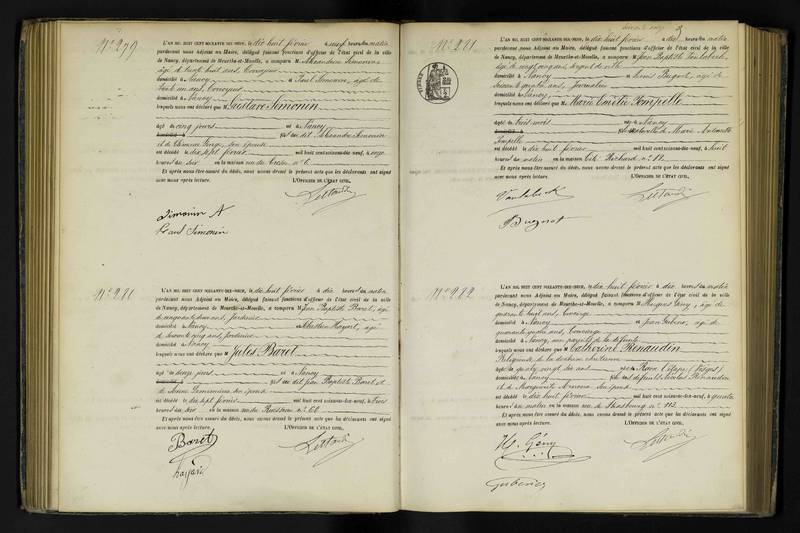 N° 279
L'AN MIL HUIT CENT SOIXANTE-DIX-NEUF, le dix huit février à neuf heures du matin
pardevant nous Adjoint au Maire, délégué faisant fonctions d'officier de l'état civil de la ville
de Nancy, département de Meurthe-et-Moselle, a comparu M. Alexandre Simonin
âgé de trente huit ans,
domicilié à Nancy et Paul Simonin, âgé de
ans,
domicilié à Nancy
lesquels nous ont déclaré que M Gustave Simonin
âgé de cinq jours né à Nancy
fils du dit Alexandre Simonin
et de son épouse
est décédé le dix sept février mil huit cent soixante-dix-neuf, à onze
heures du soir en la maison rue n° 6
Et après nous être assuré du décès, nous avons dressé le présent acte que les déclarants ont signé
avec nous après lecture. L'OFFICIER DE L'ÉTAT CIVIL,
Simonin A
Paul Simonin
N° 280
L'AN MIL HUIT CENT SOIXANTE-DIX-NEUF, le dix huit février à dix heures du matin
pardevant nous Adjoint au Maire, délégué faisant fonctions d'officier de l'état civil de la ville
de Nancy, département de Meurthe-et-Moselle, a comparu M. Jean Baptiste Baret, âgé
de cinquante ans, jardinier
domicilié à Nancy et âgé
de soixante cinq ans, jardinier
domicilié à Nancy
lesquels nous ont déclaré que M Jules Baret
âgé de douze jours né à Nancy
fils du dit Jean Baptiste Baret et
de son épouse
est décédé le dix sept février mil huit cent soixante-dix-neuf, à trois
heures du soir en la maison rue n° 66
Et après nous être assuré du décès, nous avons dressé le présent acte que les déclarants ont signé
avec nous après lecture. L'OFFICIER DE L'ÉTAT CIVIL,
Baret
N° 281
L'AN MIL HUIT CENT SOIXANTE-DIX-NEUF, le dix huit février à dix heures du matin
pardevant nous Adjoint au Maire, délégué faisant fonctions d'officier de l'état civil de la ville
de Nancy, département de Meurthe-et-Moselle, a comparu M. Jean Baptiste
âgé de ans, sergent de ville
domicilié à Nancy et Louis Bugnot, âgé de
soixante quatre ans, journalier
domicilié à Nancy
lesquels nous ont déclaré que M Marie Emélie Pompelle
âgée de trois mois née à Nancy
fille naturelle de Marie Antoinette
Pompelle
est décédée le dix huit février mil huit cent soixante-dix-neuf, à huit
heures du matin en la maison cité Richard n° 11
Et après nous être assuré du décès, nous avons dressé le présent acte que les déclarants ont signé
avec nous après lecture. L'OFFICIER DE L'ÉTAT CIVIL,
Bugnot
N° 282
L'AN MIL HUIT CENT SOIXANTE-DIX-NEUF, le dix huit février à dix heures du matin
pardevant nous Adjoint au Maire, délégué faisant fonctions d'officier de l'état civil de la ville
de Nancy, département de Meurthe-et-Moselle, a comparu M. Hugues Gény, âgé de
quarante huit ans, Concierge
domicilié à Nancy et Jean âgé de
quarante quatre ans, Concierge
domicilié à Nancy, non parents de la défunte
lesquels nous ont déclaré que M Catherine Renaudin
Religieuse de la doctrine chrétienne
âgée de quatre vingt dix ans née à Raon l'Étape (Vosges)
domiciliée à Nancy fille des défunts Nicolas Renaudin
et de Marguerite son épouse
est décédée le dix huit février mil huit cent soixante-dix-neuf, à quatre
heures du matin en la maison rue de Strasbourg n° 112
Et après nous être assuré du décès, nous avons dressé le présent acte que les déclarants ont signé
avec nous après lecture. L'OFFICIER DE L'ÉTAT CIVIL,
H. Gény